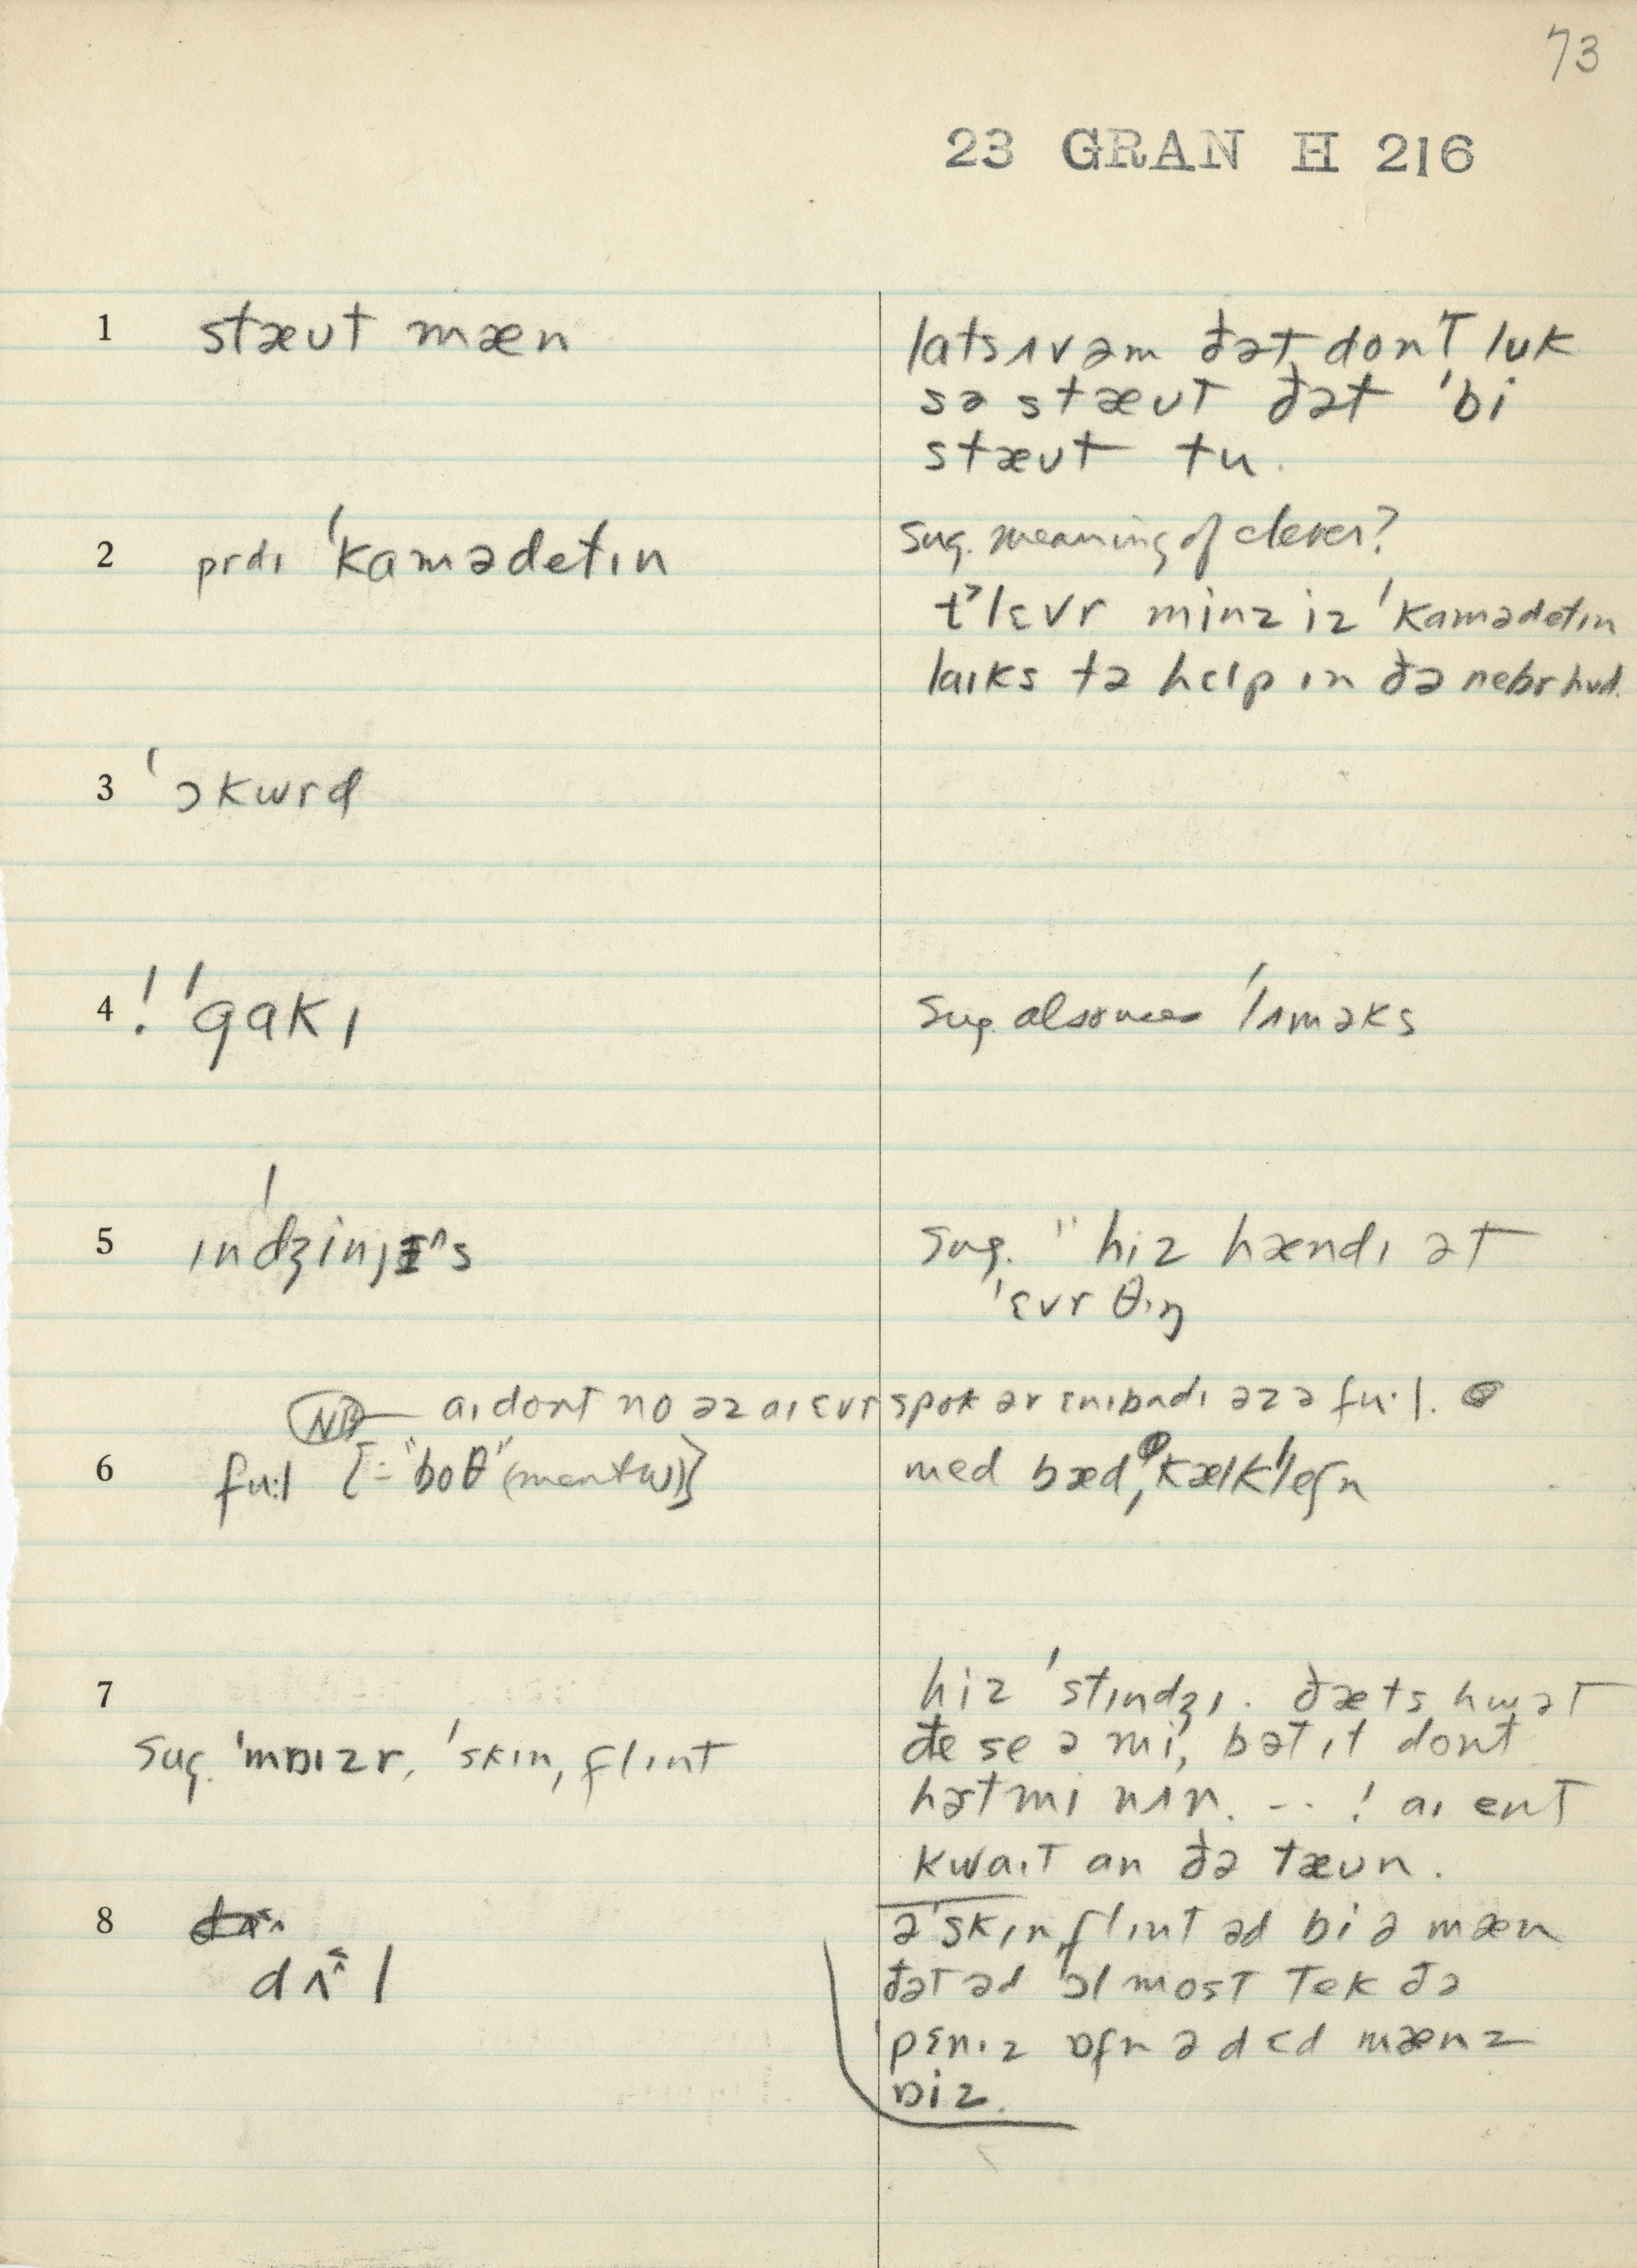 73
23 GRAN H 216
1 stæʊt mæn
lats ʌv əm ðət dont lʊk
sə stæʊt ðət 'bi
stæʊt tu.
2 prdɪ 'kamədetɪn
Sug. meaning of clever?
t>lɛvr minz iz 'kamədetɪn
laɪks tə hɛlp ɪn ðə nebrhʊd.
3 'ɔkwrd
4 ! 'gakɪ
Sug. also uses 'lʌməks
5 ɪn'dʒinjəs
Sug. "hiz hændɪ ət
'ɛvrθɪŋ
NB — aɪ dont no əz aɪ ɛvr spok əv ɛnibadɪ əz ə fu·l.
6 fu·l [= "boθ" (men + w)]
med bæd, kælk'leʃn
7
hiz 'stɪndʒɪ. ðæts hwət
ðe se ə mi, bət ɪt dont
Sug. 'mɒɪzr, 'skɪn, flɪnt
hət mɪ nʌn. -- ! aɪ ent
kwaɪt an ðə tæʊn.
8 dʌl
ə 'skɪn,flɪnt əd bi ə mæn
ðət əd 'ɔlmost tek ðə
'pɛnɪz ɒfn ə dɛd mænz
ɒiz.